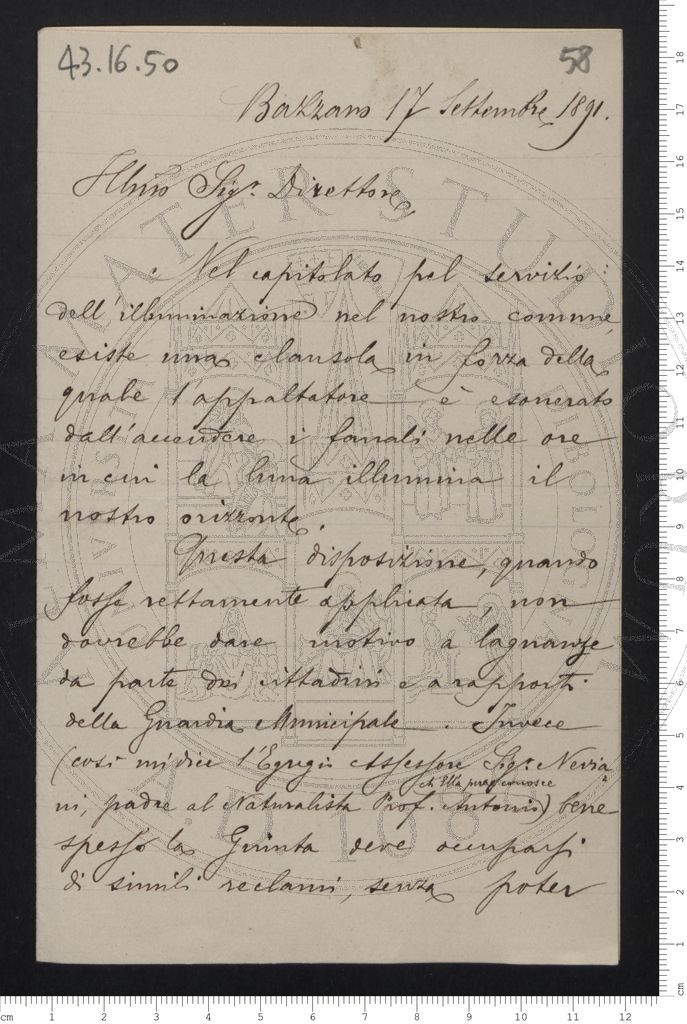 43.16.50
58
Bazzano 17 Settembre 1891.
Illmo Sigr. Direttore
Nel capitolato pel servizio
dell'illuminazione nel nostro comune
esiste una clausola in forza della
quale l'appaltatore è esonerato
dall'accendere i fanali nelle ore
in cui la luna illumina il
nostro orizzonte.
Questa disposizione, quando
fosse rettamente applicata, non
dovrebbe dare motivo a lagnanze
da parte dei cittadini e a rapporti
della Guardia Municipale. Invece
(così mi dice l'Egregio Assessore Sigr. Nevia=
ch'Ella pure conosce
ni, padre al Naturalista Prof. Antonio) bene
spesso la Giunta deve occuparsi
di simili reclami, senza poter
ALMA MATER STUDIORUM
A.D. 1088
cm 1 2 3 4 5 6 7 8 9 10 11 12
18
17
16
15
14
13
12
11
10
9
8
7
6
5
4
3
2
1
cm